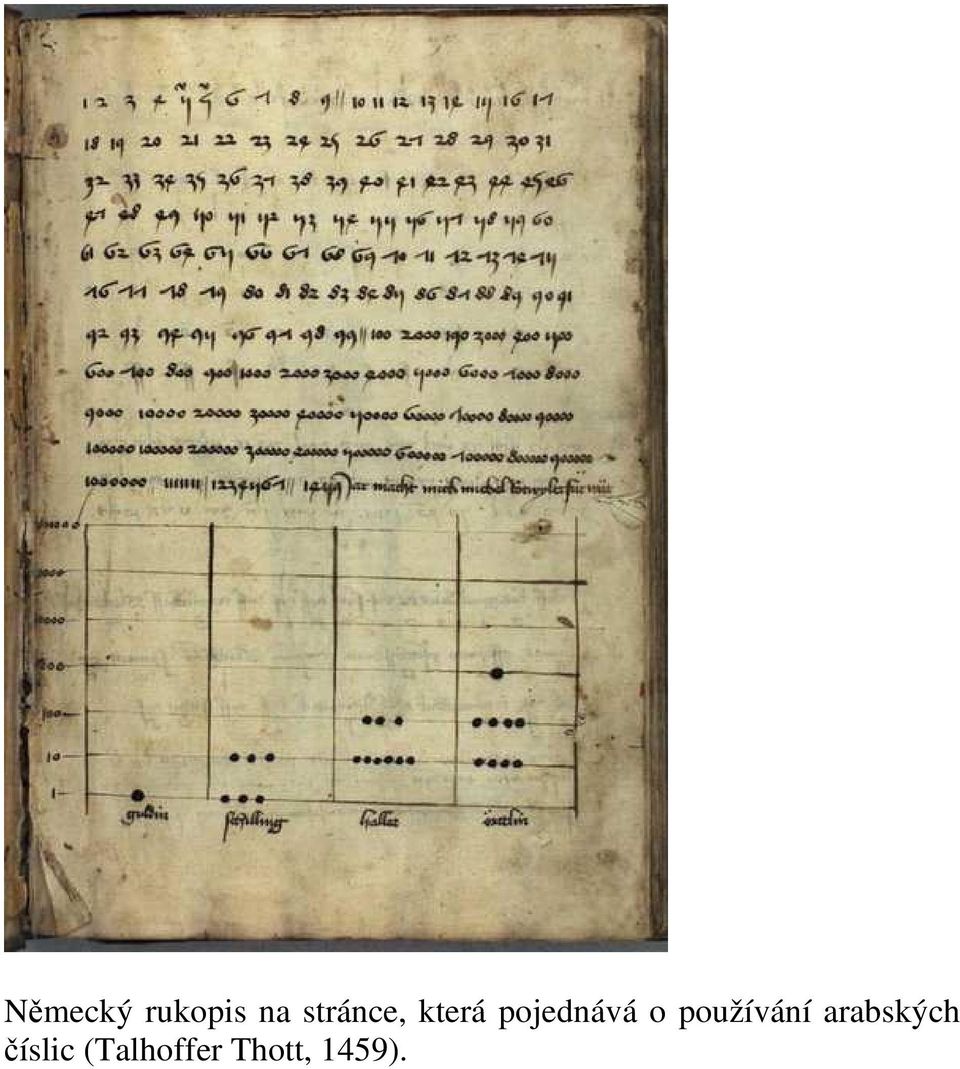 1 2 3 4 5 5 6 7 8 9 || 10 11 12 13 14 15 16 17
18 19 20 21 22 23 24 25 26 27 28 29 30 31
32 33 34 35 36 37 38 39 40 41 42 43 44 45 46
47 48 49 50 51 52 53 54 55 56 57 58 59 60
61 62 63 64 65 66 67 68 69 70 71 72 73 74 75
76 77 78 79 80 81 82 83 84 85 86 87 88 89 90 91
92 93 94 95 96 97 98 99 || 100 2000 190 3000 400 500
600 700 800 900 1000 2000 3000 4000 5000 6000 7000 8000
9000 10000 20000 30000 40000 50000 60000 70000 80000 90000
100000 100000 200000 300000 400000 500000 600000 700000 800000 900000
1000000 1111111 || 1234567 || macht mich michel
100
10
1
guldin schilling haller örttlin
Německý rukopis na stránce, která pojednává o používání arabských
číslic (Talhoffer Thott, 1459).